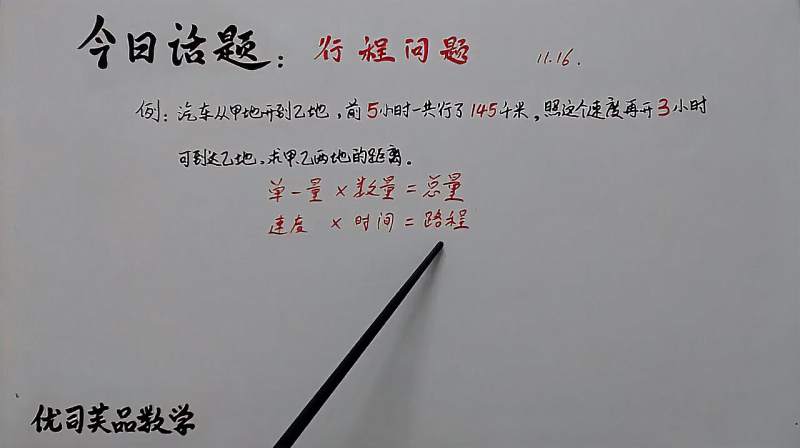 今日话题：行程问题 11.16.
例：汽车从甲地开到乙地，前5小时一共行了145千米，照这个速度再开3小时
可到达乙地，求甲、乙两地的距离。
单一量×数量=总量
速度×时间=路程
优司芙品数学